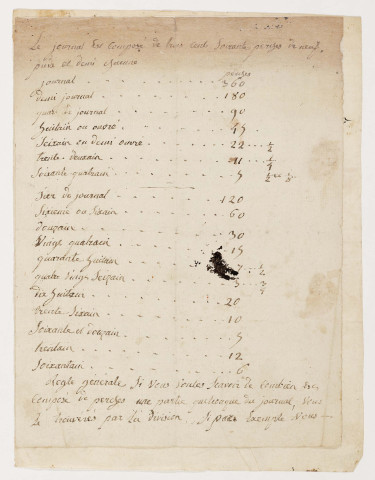 Le journal est composé de trois cent soixante perches de neuf
pieds et demi chacune
perches
journal 360
demi journal 180
quart de journal 90
huitain ou ouvré 45
seizain ou demi ouvré 22 1/2
trente deuxain 11 1/4
soixante quatrain 5 1/2 1/8
tier de journal 120
sixieme ou sixain 60
douzain 30
vingt quatrain 15
quarante huitain 7 1/2
quatre vingt seizain 3 3/4
dix huitain 20
trente sixain 10
soixante et douzain 5
trentain 12
soixantain 6
Regle generale Si vous voules scavoir de combien est
composé de perches une partie quelconque du journal, vous
le trouverés par la division. Si par Exemple vous